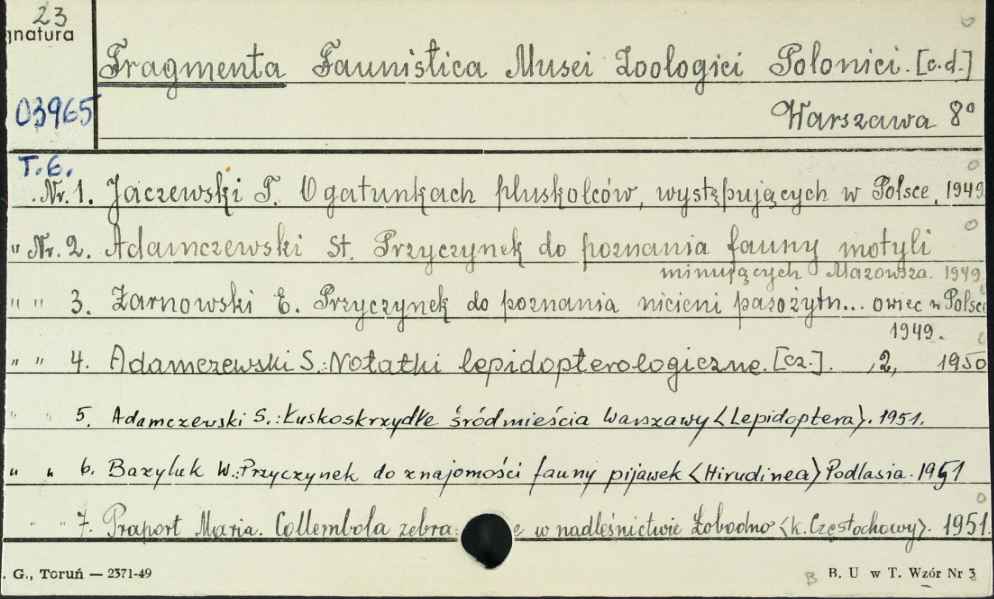 23
gnatura
Fragmenta Faunistica Musei Zoologici Polonici. [c.d.]
03965
Warszawa 8°
T.6.
Nr. 1. Jaczewski T. O gatunkach pluskolców, występujących w Polsce, 1949
" Nr. 2. Adamczewski St. Przyczynek do poznania fauny motyli
minujących Mazowsza. 1949
" " 3. Żarnowski E. Przyczynek do poznania nicieni pasożytn... owiec w Polsce
1949.
" " 4. Adamczewski S.: Notatki lepidopterologiczne. [cz.]. ,2, 1950
" " 5. Adamczewski S.: Łuskoskrzydłe śródmieścia Warszawy <Lepidoptera>. 1951.
" " 6. Bazyluk W.: Przyczynek do znajomości fauny pijawek <Hirudinea> Podlasia. 1951
" " 7. Praport Maria. Collembola zebra e w nadleśnictwie Łobodno <k. Częstochowy>. 1951.
. G., Toruń — 2371-49
B B. U w T. Wzór Nr 3